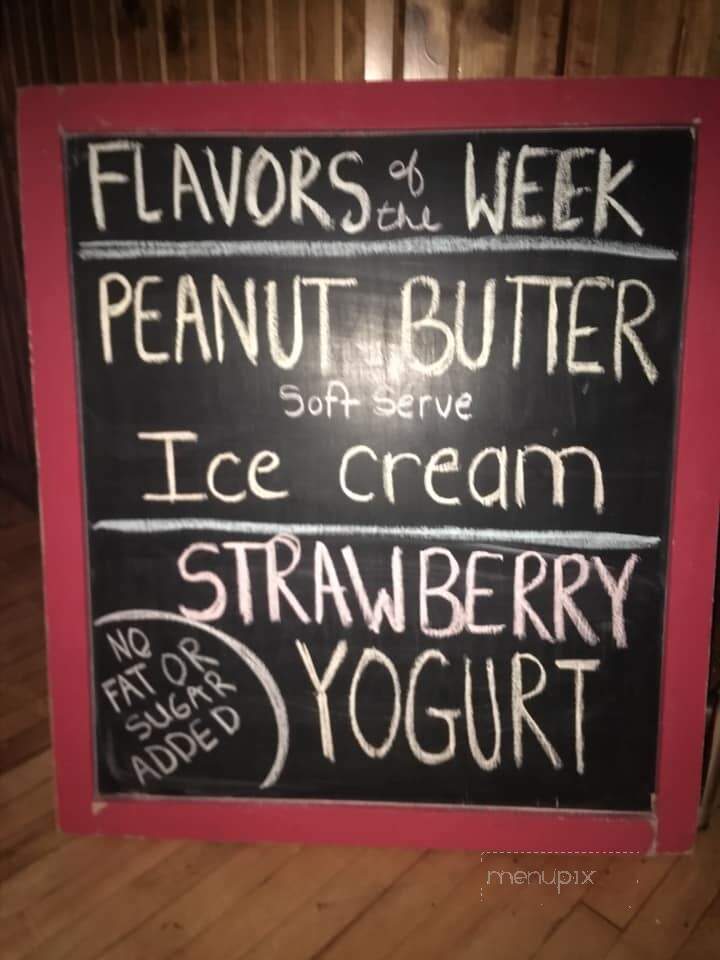 FLAVORS of the WEEK
PEANUT BUTTER
Soft Serve
Ice cream
STRAWBERRY
YOGURT
NO
FAT OR
SUGAR
ADDED
menupix